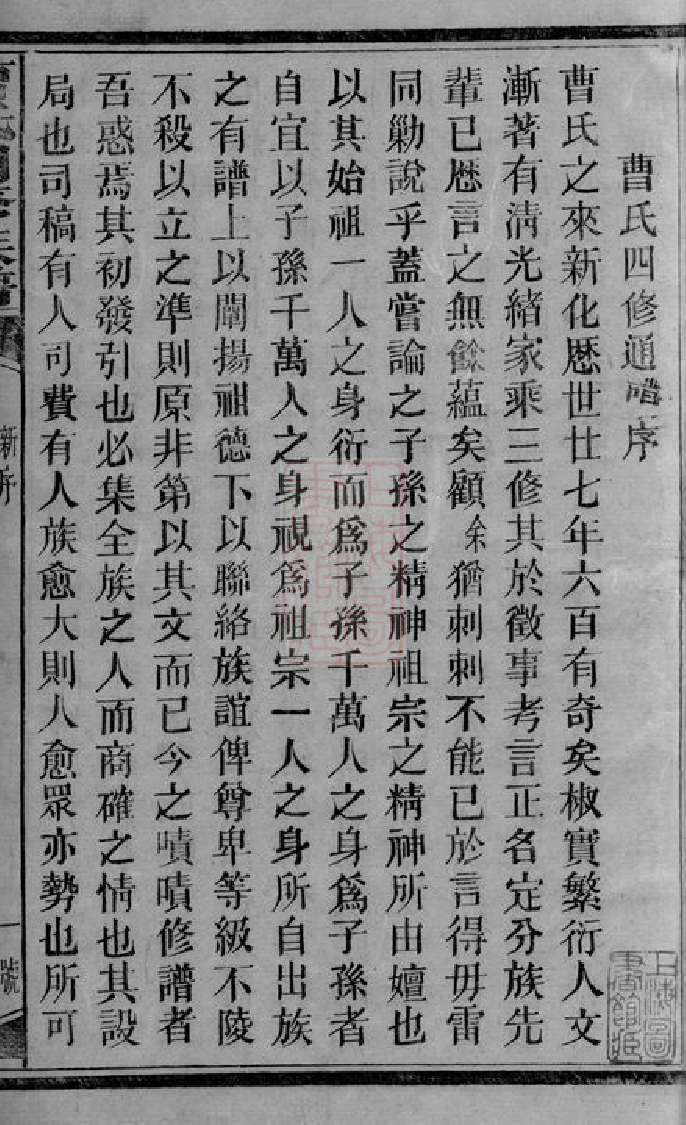 曹氏四修通譜序
曹氏之來新化歷世廿七年六百有奇矣椒實繁衍人文
漸著有淸光緒家乘三修其於徵事考言正名定分族先
輩已歷言之無餘蘊矣顧余猶刺刺不能已於言得毋雷
同勦說乎蓋嘗論之子孫之精神祖宗之精神所由嬗也
以其始祖一人之身衍而爲子孫千萬人之身爲子孫者
自宜以子孫千萬人之身視爲祖宗一人之身所自出族
之有譜上以闡揚祖德下以聯絡族誼俾尊卑等級不陵
不殺以立之準則原非第以其文而已今之嘖嘖修譜者
吾惑焉其初發引也必集全族之人而商確之情也其設
局也司稿有人司費有人族愈大則人愈眾亦勢也所可
新序
一號
上海圖書館藏